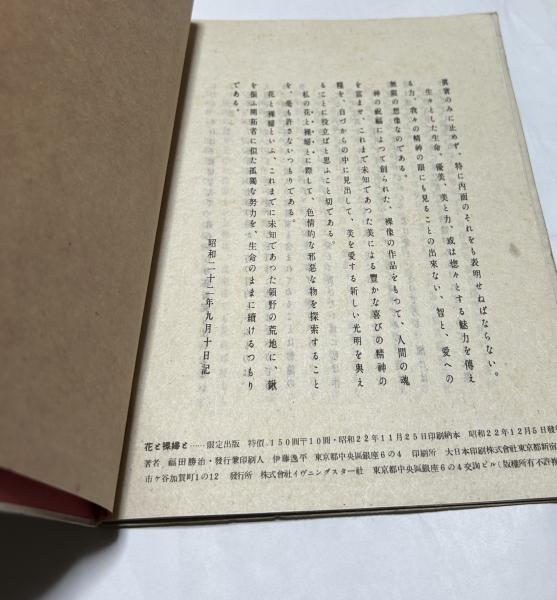 眞實のみに止めず、特に内面のそれをも表明せねばならない。
生々とした生命、優美、美と力、或は惚々とする魅力を傳え
る力、我々の精神の眼にも見ることの出來ない、智と、愛への
無限の想像なのである。
神の祝福によつて創られた、裸像の作品をもつて、人間の魂
を富ませ、これまで未知であつた美による豊かな喜びの精神の
糧を、自づからの中に見出して、美を愛する新しい光明を與え
ることに役立ばと思ふこと切である。
私の花と裸婦とに際して、色情的な邪惡な物を探索すること
を、毫も許さないつもりである。
花と裸婦といふ、これまでに未知であつた領野の荒地に、鍬
を振ふ開拓者に似た孤獨な努力を、生命のままに續けるつもり
である。
昭和二十二年九月十日記
花と裸婦と……限定出版 特價 150圓〒10圓・昭和22年11月25日印刷納本 昭和22年12月5日發
著者 福田勝治・發行兼印刷人 伊藤逸平 東京都中央區銀座6の4 印刷所 大日本印刷株式會社東京都新宿
市ケ谷加賀町1の12 發行所 株式會社イヴニングスター社 東京都中央區銀座6の4交詢ビル(版權所有不許複